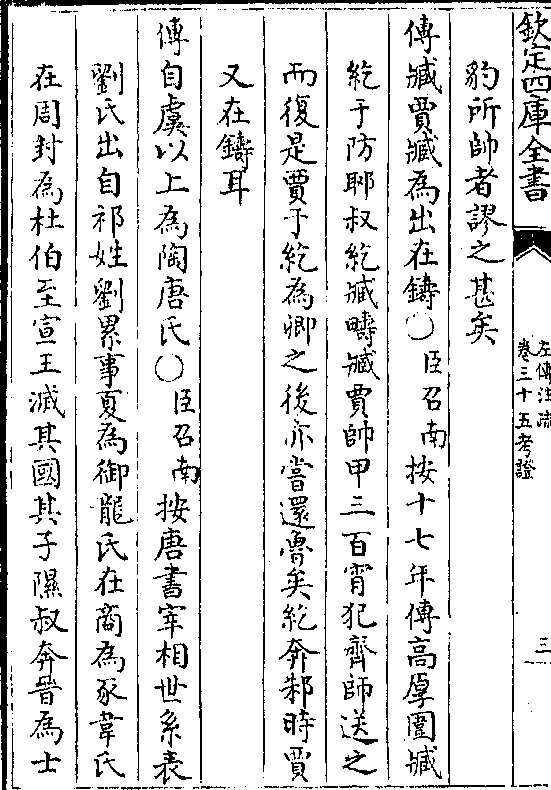 欽定四庫全書
左傳注疏
卷三十五考證
三
豹所帥者謬之甚矣
傳臧賈臧為出在鑄○臣召南按十七年傳高厚圍臧
紇于防郰叔紇臧疇臧賈帥甲三百宵犯齊師送之
而復是賈于紇為卿之後亦嘗還魯矣紇奔邾時賈
又在鑄耳
傳自虞以上為陶唐氏○臣召南按唐書宰相世系表
劉氏出自祁姓劉累事夏為御龍氏在商為豕韋氏
在周封為杜伯至宣王滅其國其子隰叔奔晉為士